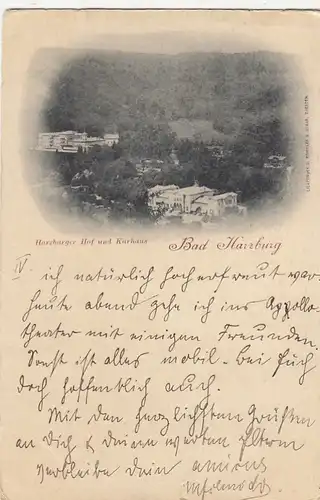 Harzburger Hof und Kurhaus
Bad Harzburg
IV. ich natürlich hocherfreut war.
heute abend gehe ich ins Apollo-
theater mit einigen Freunden.
Sonst ist alles mobil. bei Euch
doch hoffentlich auch.
Mit den herzlichsten Grüßen
an Dich & Deinen werten Eltern
verbleibe Dein